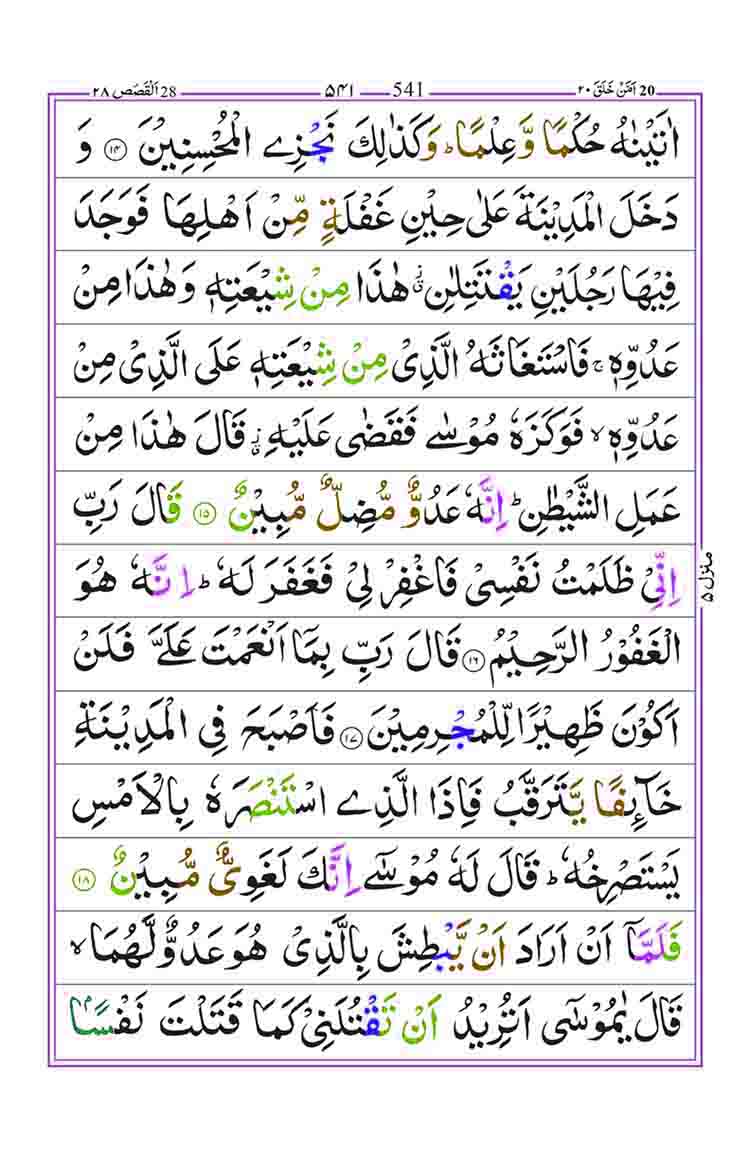 20 اَمَّنْ خَلَقَ ۲۰ 541 ۵۴۱ 28 اَلْقَصَص ۲۸
اٰتَيْنٰهُ حُكْمًا وَّعِلْمًا ؕ وَكَذٰلِكَ نَجْزِی الْمُحْسِنِيْنَ ۱۴ وَ
دَخَلَ الْمَدِيْنَةَ عَلٰى حِيْنِ غَفْلَةٍ مِّنْ اَهْلِهَا فَوَجَدَ
فِيْهَا رَجُلَيْنِ يَقْتَتِلٰنِ ۫ هٰذَا مِنْ شِيْعَتِهٖ وَهٰذَا مِنْ
عَدُوِّهٖ ۚ فَاسْتَغَاثَهُ الَّذِیْ مِنْ شِيْعَتِهٖ عَلَى الَّذِیْ مِنْ
عَدُوِّهٖ ۙ فَوَكَزَهٗ مُوْسٰى فَقَضٰى عَلَيْهِ ۫ قَالَ هٰذَا مِنْ
عَمَلِ الشَّيْطٰنِ ؕ اِنَّهٗ عَدُوٌّ مُّضِلٌّ مُّبِيْنٌ ۱۵ قَالَ رَبِّ
اِنِّیْ ظَلَمْتُ نَفْسِیْ فَاغْفِرْ لِیْ فَغَفَرَ لَهٗ ؕ اِنَّهٗ هُوَ
الْغَفُوْرُ الرَّحِيْمُ ۱۶ قَالَ رَبِّ بِمَاۤ اَنْعَمْتَ عَلَیَّ فَلَنْ
اَكُوْنَ ظَهِيْرًا لِّلْمُجْرِمِيْنَ ۱۷ فَاَصْبَحَ فِی الْمَدِيْنَةِ
خَآئِفًا يَّتَرَقَّبُ فَاِذَا الَّذِی اسْتَنْصَرَهٗ بِالْاَمْسِ
يَسْتَصْرِخُهٗ ؕ قَالَ لَهٗ مُوْسٰۤى اِنَّكَ لَغَوِیٌّ مُّبِيْنٌ ۱۸
فَلَمَّاۤ اَنْ اَرَادَ اَنْ يَّبْطِشَ بِالَّذِیْ هُوَ عَدُوٌّ لَّهُمَا ۙ
قَالَ يٰمُوْسٰۤى اَتُرِيْدُ اَنْ تَقْتُلَنِیْ كَمَا قَتَلْتَ نَفْسًاۢ
منزل ۵